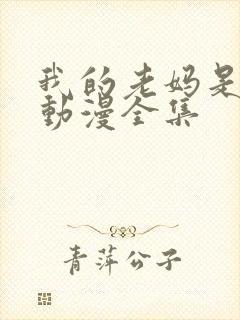 我的老妈是
動漫全集
青萍公子